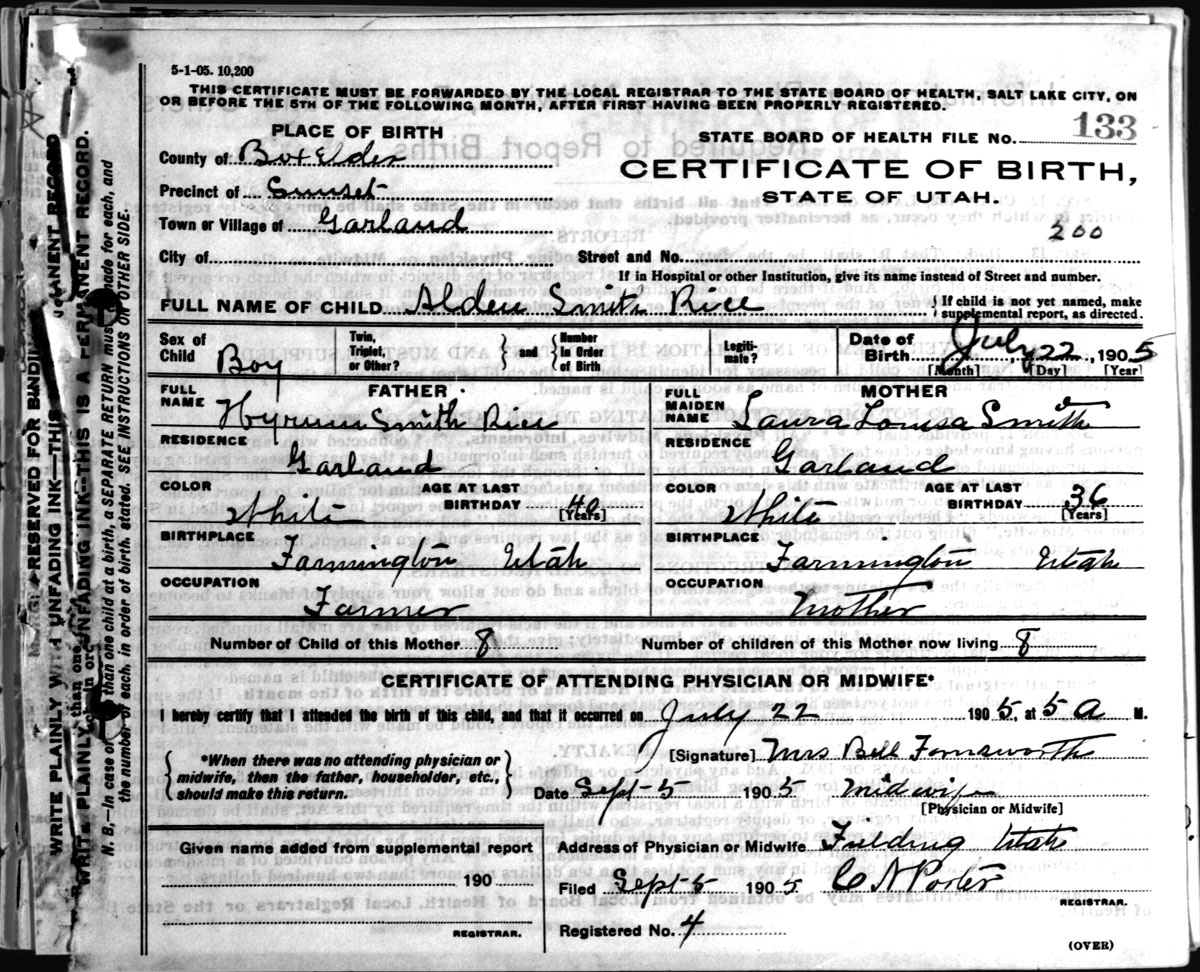 5-1-05. 10,200
THIS CERTIFICATE MUST BE FORWARDED BY THE LOCAL REGISTRAR TO THE STATE BOARD OF HEALTH, SALT LAKE CITY, ON
OR BEFORE THE 5TH OF THE FOLLOWING MONTH, AFTER FIRST HAVING BEEN PROPERLY REGISTERED.
PLACE OF BIRTH
STATE BOARD OF HEALTH FILE No. 133
County of Box Elder
CERTIFICATE OF BIRTH,
Precinct of Sunset
STATE OF UTAH.
Town or Village of Garland
200
City of Street and No.
If in Hospital or other Institution, give its name instead of Street and number.
FULL NAME OF CHILD Alden Smith Rice { If child is not yet named, make
supplemental report, as directed.
Sex of Child Boy
Twin, Triplet, or Other? } and { Number in Order of Birth
Legitimate?
Date of Birth July 22, 1905
[Month] [Day] [Year]
FATHER
FULL NAME Hyrum Smith Rice
RESIDENCE
Garland
COLOR AGE AT LAST
White BIRTHDAY 40
[Years]
BIRTHPLACE
Farmington Utah
OCCUPATION
Farmer
MOTHER
FULL MAIDEN NAME Laura Louisa Smith
RESIDENCE
Garland
COLOR AGE AT LAST
White BIRTHDAY 36
[Years]
BIRTHPLACE
Farmington Utah
OCCUPATION
Mother
Number of Child of this Mother 8 Number of children of this Mother now living 8
CERTIFICATE OF ATTENDING PHYSICIAN OR MIDWIFE*
I hereby certify that I attended the birth of this child, and that it occurred on July 22 1905, at 5 a M.
{ *When there was no attending physician or
midwife, then the father, householder, etc.,
should make this return. }
[Signature] Mrs Bell Farnsworth
Date Sept-5 1905 Midwife
[Physician or Midwife]
Given name added from supplemental report
190
REGISTRAR.
Address of Physician or Midwife Fielding Utah
Filed Sept-5 1905 C A Porter
REGISTRAR.
Registered No. 4
(OVER)
RESERVED FOR BINDING
WRITE PLAINLY WITH UNFADING INK—THIS IS A PERMANENT RECORD
WRITE PLAINLY WITH UNFADING INK—THIS IS A PERMANENT RECORD.
N. B.—In case of more than one child at a birth, a SEPARATE RETURN must be made for each, and
the number of each, in order of birth, stated. SEE INSTRUCTIONS ON OTHER SIDE.